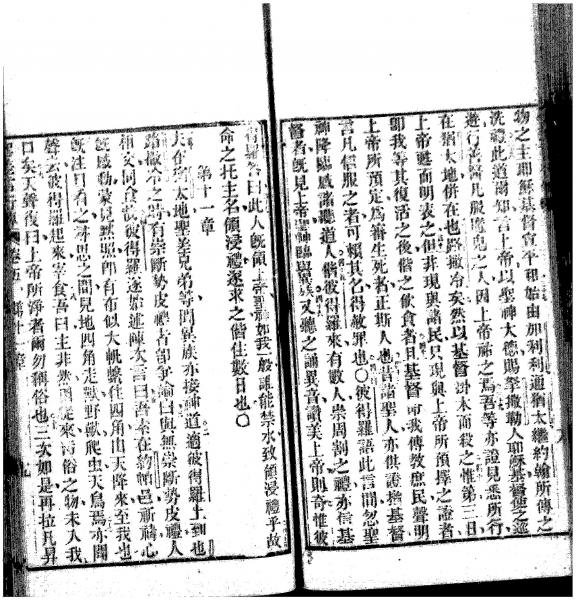 物之主耶穌基督宣平和始由加利利通猶太繼約翰所傳之
洗禮此道爾知言上帝以聖神大德賜拿撒勒人耶穌基督使之巡
遊行善醫凡服魔鬼之人因上帝祐之焉吾等亦證見悉所行
在猶太地併在也路撒冷矣然以基督掛木而殺之惟第三日
上帝甦而明表之但非現與諸民只現與上帝所預擇之證者
卽我等其復活之後偕之飲食者且基督命我傳教庶民聲明
上帝所預定爲審生死者正斯人也昔諸聖人亦俱證據基督
言凡信服之者可賴其名得赦罪也〇彼得羅語此言間忽聖
神降臨感諸聽道人偕彼得羅來有數人崇周割之禮亦信基
督者旣見上帝聖神臨異族又聽之誦異音讚美上帝則奇惟彼
得羅答曰此人旣領上帝聖神如我一般誰能禁水致領浸禮乎故
命之托主名領浸禮遂求之偕住數日也〇
第十一章
夫在猶太地聖差兄弟等聞異族亦接神道適彼得羅上到也
路撒冷之時有崇斷勢皮禮者卽爭論曰與無崇斷勢皮禮人
相交同食焉彼得羅遂始述陳次言曰吾奉在約帕邑祈禱心
旣感動蒙見默照卽有布似大帆繫住四角由天降來至我也
旣注目看之尋思之間見地四角走獸野獸爬虫天鳥焉亦聞
聲云彼得羅起來宰食吾曰主非然因從來污俗之物未入我
口矣天聲復曰上帝所淨者爾勿稱俗也三次如是再拉凡昇